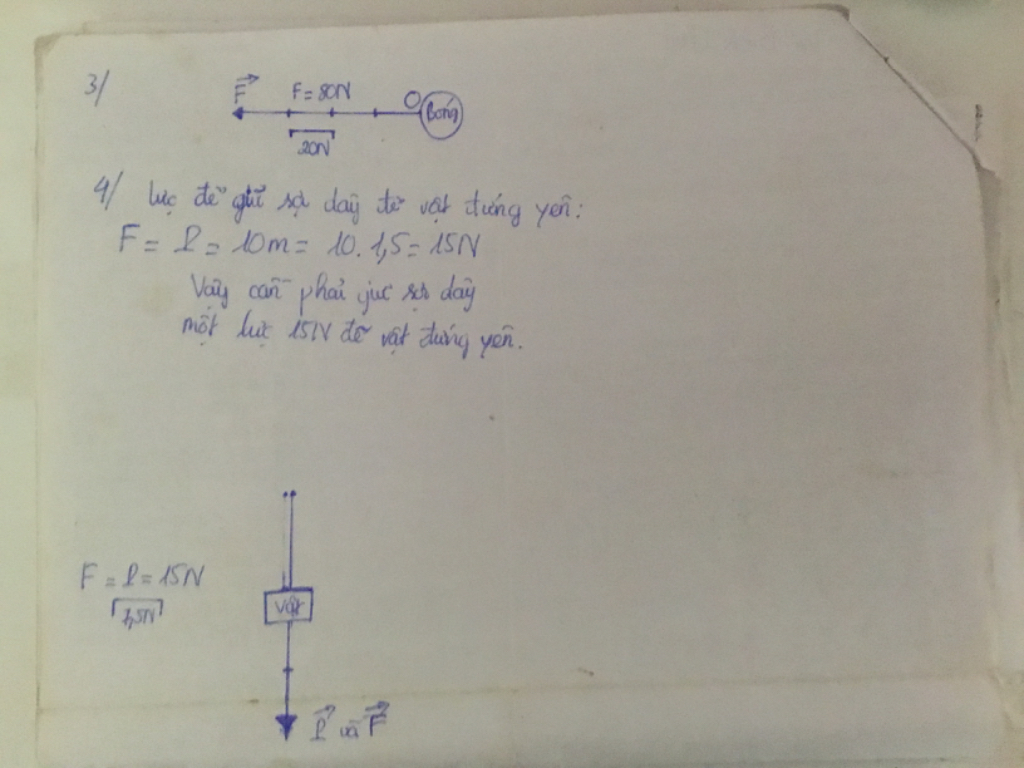 3/
F F = 80N O Bóng
20N
4/ Lực để giữ sợi dây để vật đứng yên:
F = P = 10m = 10. 1,5 = 15N
Vậy cần phải giữ sợi dây
một lực 15N để vật đứng yên.
F = P = 15N
7,5N
Vật
P và F